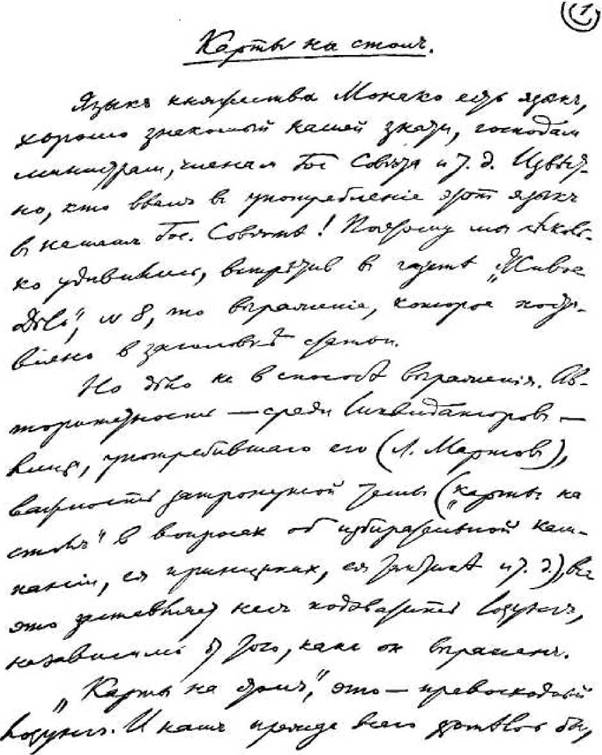 1
Карты на столъ.
Языкъ княжества Монако есть языкъ,
хорошо знакомый нашей знати, господам
министрам, членам Гос Совѣта и т. д. Извѣст-
но, кто ввелъ в употребленіе этот языкъ
в нашем Гос. Совѣтѣ! Поэтому мы нѣсколь-
ко удивились, встрѣтив в газетѣ „Живое
Дѣло", № 8, то выраженіе, которое поста-
влено в заголовкѣ статьи.
Но дѣло не в способѣ выраженія. Ав-
торитетность — среди ликвидаторов —
лица, употребившаго его (Л. Мартов),
важность затронутой темы („карты на
столъ" в вопросах об избирательной кам-
паніи, ея принципах, ея тактикѣ и т. д.), все
это заставляет нас подхватить лозунгъ,
независимо от того, кѣм он выраженъ.
„Карты на столъ", это — превосходный
лозунгъ. И нам прежде всего хотѣлось бы,